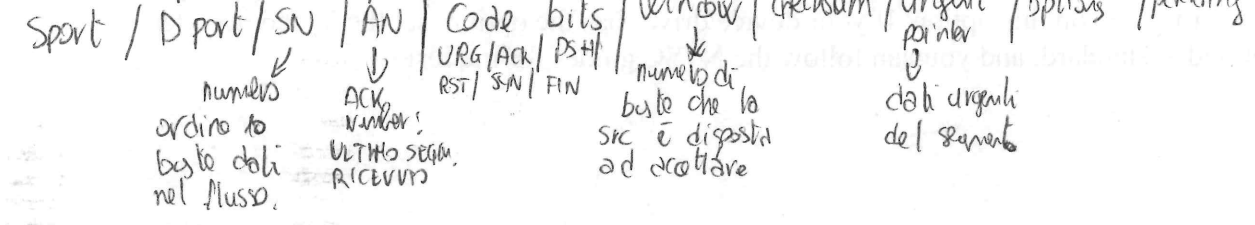 Sport / D port / SN / AN / Code bits / Window / checksum / urgent pointer / options / padding
URG / ACK / PSH /
RST / SYN / FIN
numero
ordine 1o
byte dati
nel flusso.
ACK
Number:
ULTIMO SEGM.
RICEVUTO
numero di
byte che la
src è disposta
ad accettare
dati urgenti
del segmento